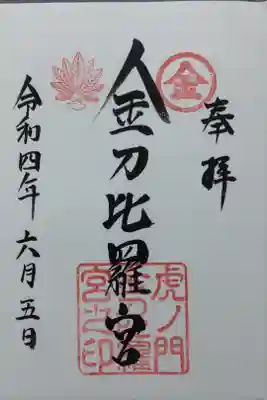 奉拝
金
金刀比羅宮
虎ノ門
金刀比羅
宮之印
令和四年六月五日